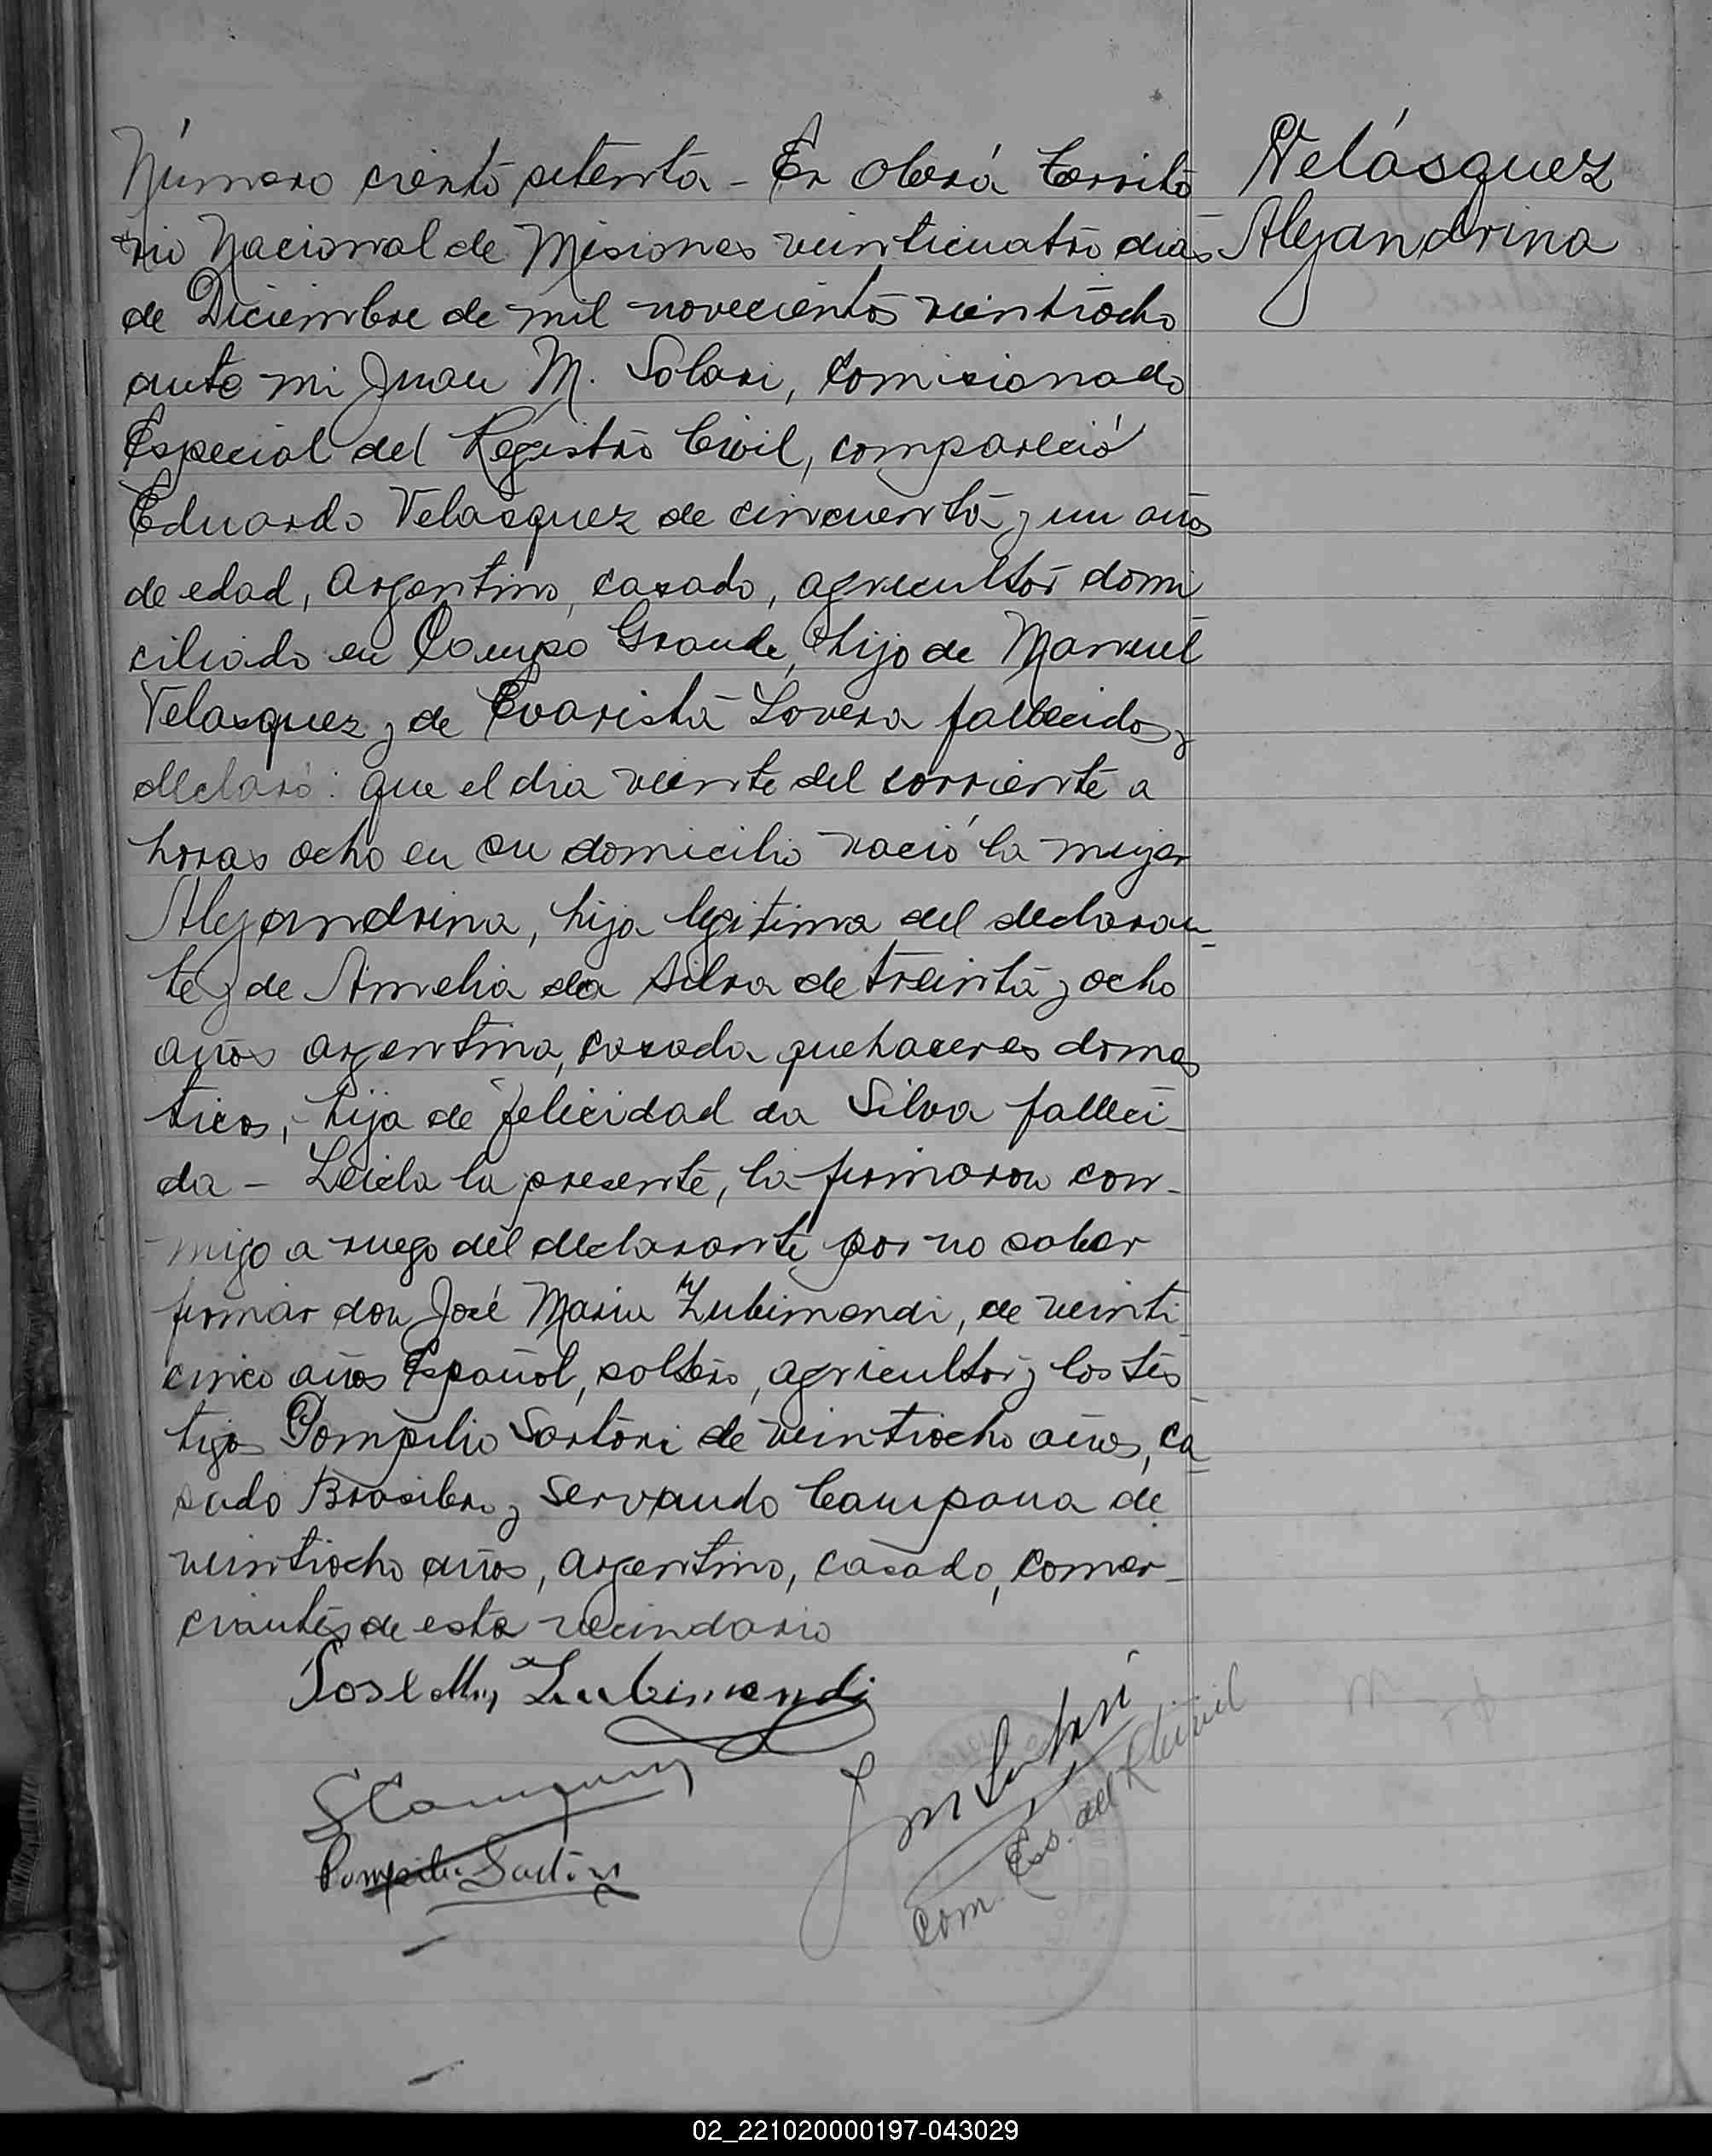 Número ciento setenta - En Oberá Territo
rio Nacional de Misiones veinticuatro dias
de Diciembre de mil novecientos veintiocho
ante mi Juan M. Solari, Comisionado
Especial del Registro Civil, compareció
Eduardo Velasquez de cincuenta y un años
de edad, argentino, casado, agricultor domi
ciliado en Campo Grande, hijo de Manuel
Velasquez y de Evarista Lovera fallecidos y
declaró: que el dia veinte del corriente a
horas ocho en su domicilio nació la mujer
Alejandrina, hija legitima del declaran-
te y de Amelia da Silva de treinta y ocho
años argentina, casada quehaceres domes
ticos, hija de felicidad da Silva falleci-
da - Leida la presente, la firmaron con-
migo a ruego del declarante por no saber
firmar don José Maria Zubimendi, de veinti
cinco años Español, soltero, agricultor y los tes
tigos Pompilio Sartori de veintiocho años, ca-
sado Brasilero y Servando Campana de
veintiocho años, argentino, casado, comer-
ciantes de este vecindario
Velásquez
Alejandrina
Jose Ma Zubimendi
S Campana
Pompilio Sartori
J M Solari
Com. Esp. del R Civil
02_221020000197-043029